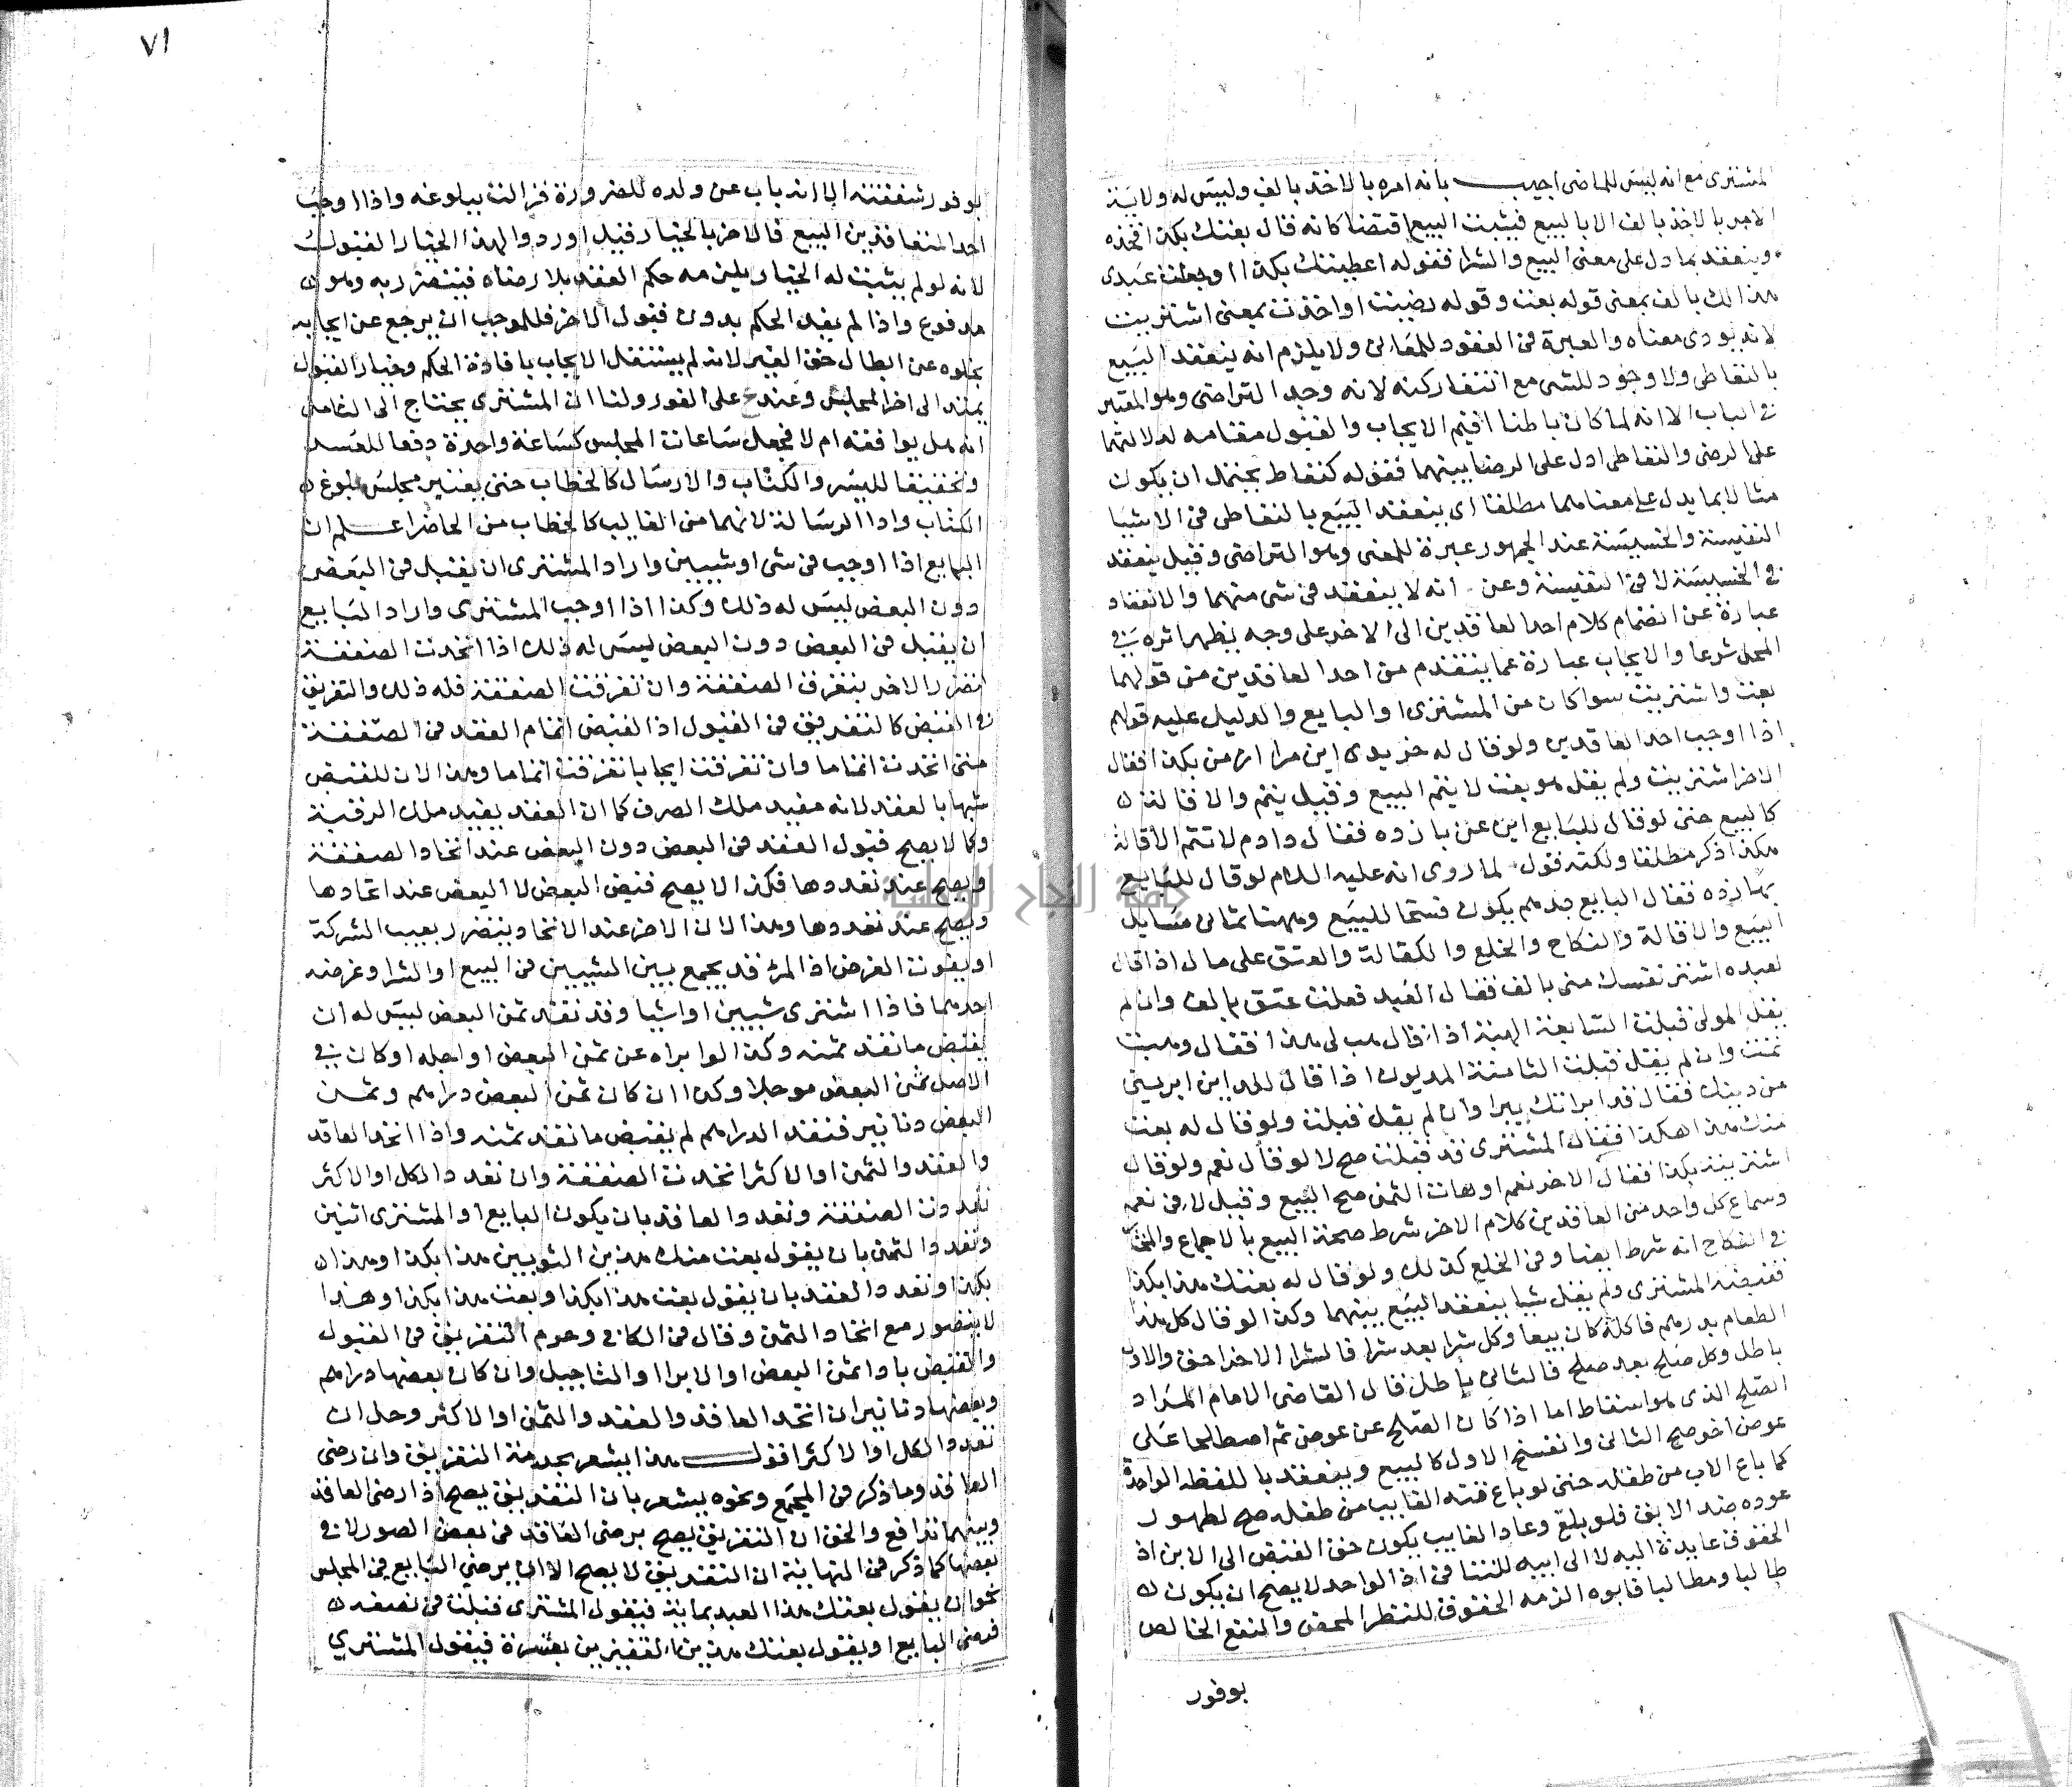 المشترى مع انه ليس للماضى اجيب بانه امره بالاخذ بالف وليس له ولاية
الامر بالاخذ بالف الا بالبيع فيثبت البيع اقتضا كانه قال بعتك بكذا فخذه
وينعقد بما دل على معنى البيع والشرا فقوله اعطيتك بكذا او جعلت عبدى
هذا لك بالف بمعنى قوله بعت وقوله رضيت او اخذت بمعنى اشتريت
لانه يودى معناه والعبرة فى العقود للمعانى ولا يلزم انه ينعقد البيع
بالتعاطى ولا وجود للشى مع انتفا ركنه لانه وجد التراضى وهو المعتبر
فى الباب الا انه لما كان باطنا اقيم الايجاب والقبول مقامه لدلالتهما
على الرضى والتعاطى ادل على الرضا بينهما فقوله كتعاط يحتمل ان يكون
مثالا بما يدل على معناهما مطلقا اى ينعقد البيع بالتعاطى فى الاشيا
النفيسة والخسيسة عند الجمهور عبرة للمعنى وهو التراضى وقيل ينعقد
فى الخسيسة لا فى النفيسة وعن انه لا ينعقد فى شى منهما والانعقاد
عبارة عن انضمام كلام احد العاقدين الى الاخر على وجه يظهر اثره فى
المحل شرعا والايجاب عبارة عما يتقدم من احد العاقدين من قولهما
بعت واشتريت سوا كان من المشترى او البايع والدليل عليه قولهم
اذا اوجب احد العاقدين ولو قال له خريدى اين مرا از من بكذا فقال
الاخر اشتريت ولم يقل هو بعت لا يتم البيع وقيل يتم والاقالة
كالبيع حتى لو قال للبايع اين عن باز ده فقال دادم لا تتم الاقالة
هكذا ذكر مطلقا ولكنه قول لما روى انه عليه السلام لو قال للبايع
بها زده فقال البايع بدهم يكون فسخا للبيع وههنا ثمانى مسايل
البيع والاقالة والنكاح والخلع والكفالة والعتق على مال اذا قال
لعبده اشتر نفسك منى بالف فقال العبد فعلت عتق بالف وان لم
يقل المولى قبلت السابعة الهبة اذا قال هب لى هذا فقال وهبت
تمت وان لم يقل قبلت الثامنة المديون اذا قال للداين ابريتنى
من دينك فقال قد ابراتك يبرا وان لم يقل قبلت ولو قال له بعت
منك هذا هكذا فقال المشترى قد قبلت صح لا لو قال نعم ولو قال
اشتريته بكذا فقال الاخر نعم او هات الثمن صح البيع وقيل لا فى نعم
وسماع كل واحد من العاقدين كلام الاخر شرط صحة البيع بالاجماع
فى النكاح انه شرط ايضا وفى الخلع كذلك ولو قال له بعتك هذا بكذا
فقبضه المشترى ولم يقل شيا ينعقد البيع بينهما وكذا لو قال كل هذا
الطعام بدرهم فاكله كان بيعا وكل شرا بعد شرا فالشرا الاخر احق والاول
باطل وكل صلح بعد صلح فالثانى باطل قال القاضى الامام المراد
الصلح الذى هو اسقاط اما اذا كان الصلح عن عوض ثم اصطلحا على
عوض اخر صح الثانى وانفسخ الاول كالبيع وينعقد باللفظ الواحد
كما باع الاب من طفله حتى لو باع قنه الغايب من طفله صح لظهور
عوده ضد الابق فلو بلغ وعاد الغايب يكون حق القبض الى الابن اذ
الحقوق عايدة اليه لا الى ابيه للتنافى اذ الواحد لا يصح ان يكون
طالبا ومطالبا فابوه الزمه الحقوق للنظر المحض والنفع الخالص
بوفور
٧١
بوفور شفقته الا انه باب عن ولده للضرورة فزالت ببلوغه واذا اوجب
احد المتعاقدين البيع فالاخر بالخيار قبل او رد والهذا الخيار القبول
لانه لو لم يثبت له الخيار يلزمه حكم العقد بلا رضاه فيتضرر به وهو
مدفوع واذا لم يفد الحكم بدون قبول الاخر فللموجب ان يرجع عن ايجابه
بخلوه عن ابطال حق الغير لانه لم يستقل الايجاب بافادة الحكم وخيار القبول
يمتد الى اخر المجلس وعند على الفور ولنا ان المشترى يحتاج الى التامل
انه هل يوافقه ام لا فجعل ساعات المجلس كساعة واحدة دفعا للعسر
وتحقيقا لليسر والكتاب والارسال كالخطاب حتى يعتبر مجلس بلوغ
الكتاب وادا الرسالة لانهما من الغايب كالخطاب من الحاضر اعلم ان
البايع اذا اوجب فى شى او شيين واراد المشترى ان يقبل فى البعض
دون البعض ليس له ذلك وكذا اذا اوجب المشترى واراد البايع
ان يقبل فى البعض دون البعض ليس له ذلك اذا اتحدت الصفقة
لتضرر الاخر بتفرق الصفقة وان تفرقت الصفقة فله ذلك والتفريق
فى القبض كالتفريق فى القبول اذ القبض اتمام العقد فى الصفقة
متى اتحدت اتماما وان تفرقت ايجابا تفرقت اتماما وهذا لان للقبض
شبها بالعقد لانه مفيد ملك الصرف كما ان العقد يفيد ملك الرقبة
وكما لا يصح قبول العقد فى البعض دون البعض عند اتحاد الصفقة
ويصح عند تعددها فكذا لا يصح قبض البعض لا البعض عند اتحادها
ويصح عند تعددها وهذا لان الاخر عند الاتحاد يتضرر بعيب الشركة
او يفوت الغرض اذ المرء قد يجمع بين الشيين فى البيع او الشرا وغرضه
احدهما فاذا اشترى شيين او اشيا وقد نقد ثمن البعض ليس له ان
يقبض ما نقد ثمنه وكذا لو ابراه عن ثمن البعض او اجله او كان فى
الاصل ثمن البعض موجلا وكذا ان كان ثمن البعض دراهم وثمن
البعض دنانير فنقد الدراهم لم يقبض ما نقد ثمنه واذا اتحد العاقد
والعقد والثمن او الاكثر اتحدت الصفقة وان تعدد الكل او الاكثر
تعددت الصفقة وتعدد العاقد بان يكون البايع او المشترى اثنين
وتعدد الثمن بان يقول بعت منك هذين الثوبين هذا بكذا وهذا
بكذا وتعدد العقد بان يقول بعت هذا بكذا وبعت هذا بكذا وهذا
لا يتصور مع اتحاد الثمن وقال فى الكافى وحرم التفريق فى القبول
والقبض باداء ثمن البعض او الابرا او التاجيل وان كان بعضها دراهم
وبعضها دنانير ان اتحد العاقد والعقد والثمن او الاكثر وحل ان
تعدد الكل او الاكثر اقول هذا يشعر بحرمة التفريق وان رضى
العاقد وما ذكر فى المجمع ونحوه يشعر بان التفريق يصح اذا رضى العاقد
وبينهما تدافع والحق ان التفريق يصح برضى العاقد فى بعض الصور لا فى
بعضها كما ذكر فى النهاية ان التفريق لا يصح الا ان يرضى البايع فى المجلس
نحو ان يقول بعتك هذا العبد بماية فيقول المشترى قبلت فى نصفه
فرضى البايع او يقول بعتك هذين القفيزين بعشرة فيقول المشترى
جامعة النجاح الوطنية